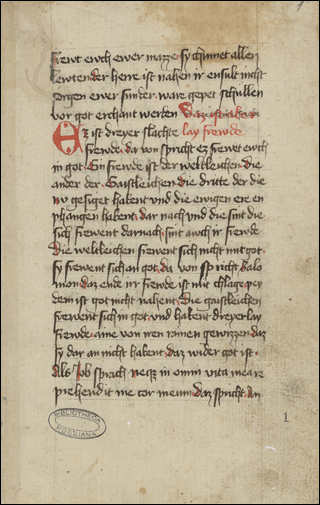 frewt ewch ewer mazze sy chumet allen
lewten der herre ist nahen ir ensult nicht
sorgen ewer sunder ware gepet schullen
vor got erchant werden Daz ist aller
Ez ist dreyer slachte lay frewde
frewde. da von spricht ez frewet ewch
in got. Ein frewde ist der weltleichen die
ander der. Gaistleichen die dritte der die
nv gesiget habent vnd die ewigen ere en
phangen habent. dar nach vnd die sint die
sich frewent darnach. sint auch ir frewde
Die weltleichen frewent sich nicht mit got.
sy frewent sich an got. da von spricht salo
mon daz ende irr frewde ist mit chlage pey
dem ist got nicht nahent. Die gaistleichen
frewent sich in got. vnd habent dreyerlay
frewde. aine von iren rainen gewizzen daz
sy dar an nicht habent. daz wider got ist.
Als Job sprach neque in omni vita mea re
prehendit me cor meum. daz spricht. An
1
BIBLIOTHECA
ROSSIANA